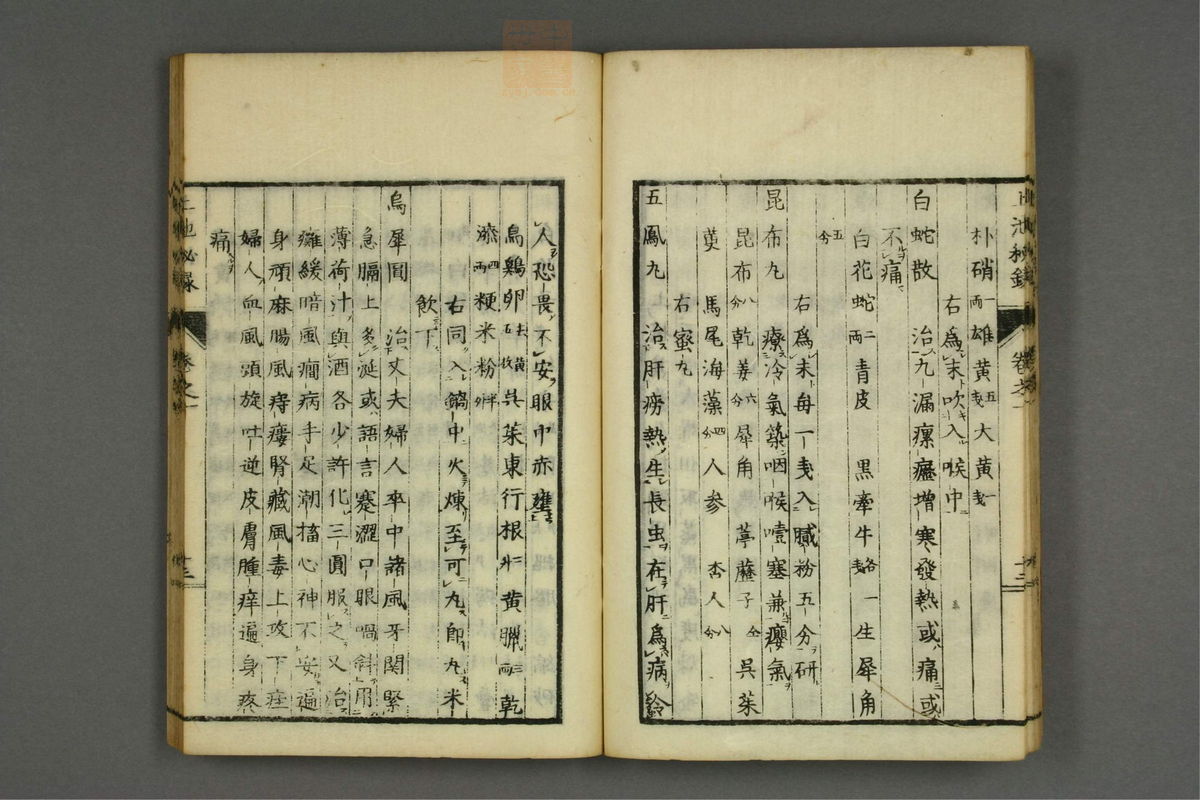 朴硝一両雄黄五戔大黄一戔
右爲末吹入喉中
白蛇散 治九漏瘰癧增寒發熱或痛或
不痛
白花蛇二両青皮 黒牽牛各一戔生犀角
五分
右爲末毎一戔入膩粉五分研
昆布丸 療冷氣築咽喉噎塞兼癭氣
昆布八分乾姜六分犀角 葶藶子仝 呉茱
萸 馬尾海藻四分人参 杏人八分
右蜜丸
五鳳丸 治肝癆熱生長虫在肝爲病
人恐畏不安眼巾赤壅
烏鷄卵去黄五枚呉茱東行根 黄臘三両乾
漆四両粳米粉半斤
右同入鍋中火煉至可丸即丸米
飲下
烏犀圓 治丈夫婦人卒中諸風牙関緊
急膈上多涎或語言蹇澀口眼喎斜用
薄荷汁與酒各少許化三圓服之又治
癱緩暗風癇病手足潮搐心神不安遍
身頑麻腸風痔瘻腎臓風毒上攻下疰
婦人血風頭旋吐逆皮膚腫痒遍身疼
痛
卷之一
十三
卷之一
十三